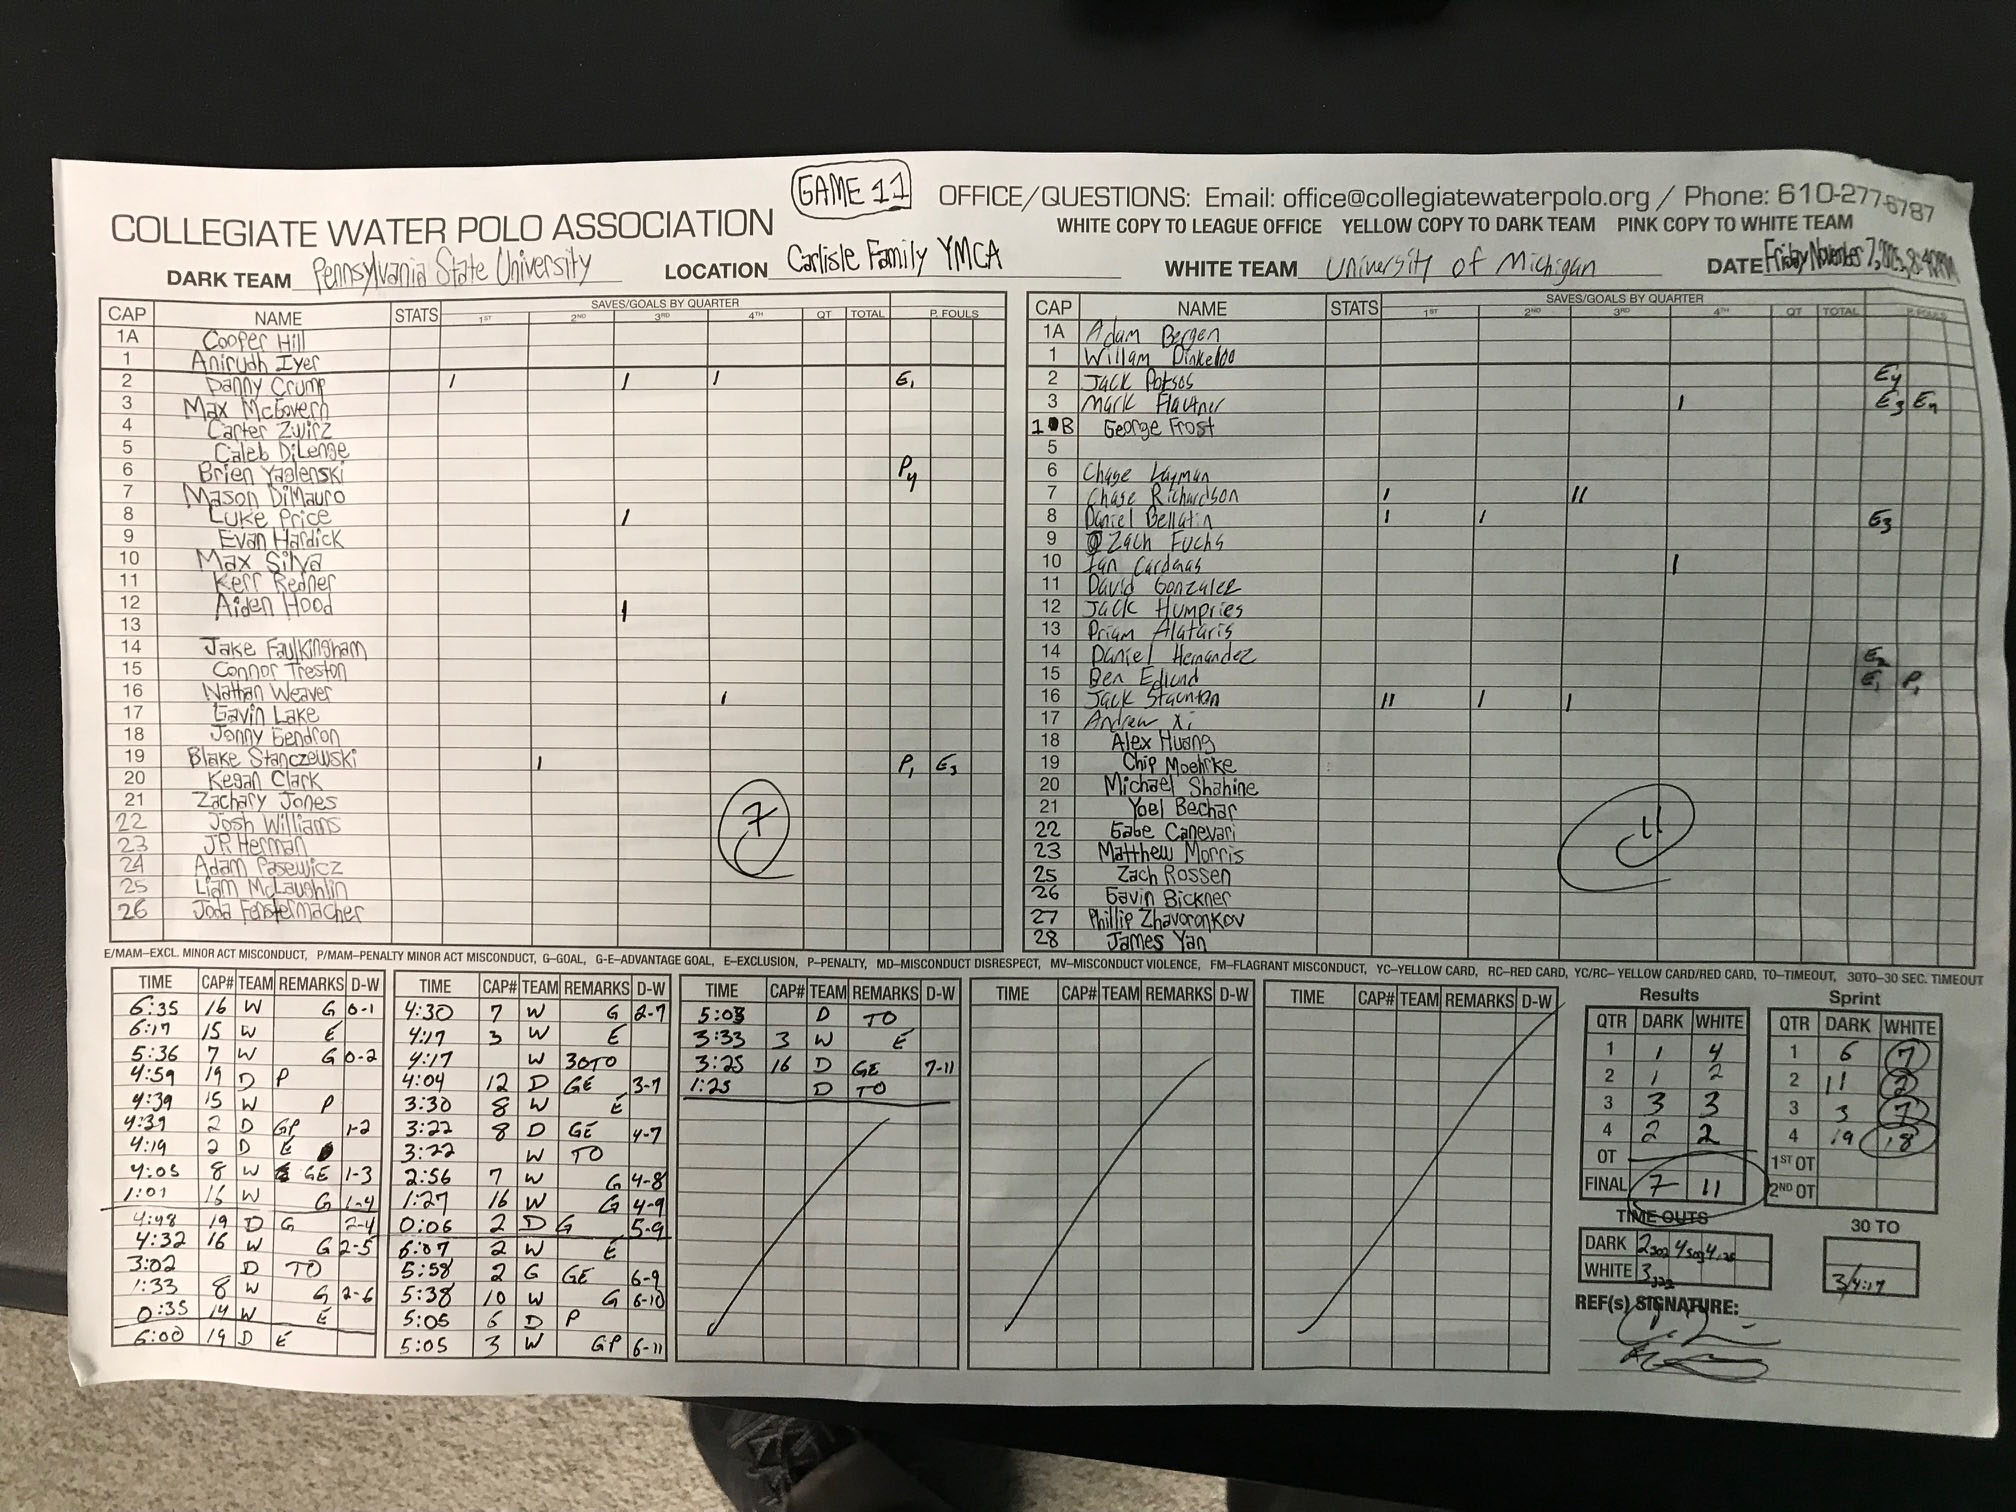 GAME 11
OFFICE/QUESTIONS: Email: office@collegiatewaterpolo.org / Phone: 610-277-6787
COLLEGIATE WATER POLO ASSOCIATION
WHITE COPY TO LEAGUE OFFICE YELLOW COPY TO DARK TEAM PINK COPY TO WHITE TEAM
DARK TEAM Pennsylvania State University LOCATION Carlisle Family YMCA WHITE TEAM University of Michigan DATE Friday November 7,
CAP NAME STATS SAVES/GOALS BY QUARTER 1ST 2ND 3RD 4TH OT TOTAL P. FOULS
1A Cooper Hill
1 Anirudh Iyer
2 Danny Crump / / / E1
3 Max McGovern
4 Carter Zwirz
5 Caleb DiLenge
6 Brien Yaglenski P4
7 Mason DiMauro
8 Luke Price /
9 Evan Hardick
10 Max Silva
11 Kerr Redner
12 Aiden Hood /
13
14 Jake Faulkingham
15 Connor Treston
16 Nathan Weaver /
17 Gavin Lake
18 Jonny Gendron
19 Blake Stanczewski / P1 E3
20 Kegan Clark
21 Zachary Jones
22 Josh Williams
23 JP Herman
24 Adam Pasewicz
25 Liam McLaughlin
26 Joda Fenstermacher
7
CAP NAME STATS SAVES/GOALS BY QUARTER 1ST 2ND 3RD 4TH OT TOTAL P. FOULS
1A Adam Bergen
1 Willam Dinkeloo
2 Jack Potsos E4
3 Mark Flautner / E3 E4
1 B George Frost
5
6 Chase Layman
7 Chase Richardson / //
8 Daniel Bellatin / / E3
9 Zach Fuchs
10 Ian Cardenas /
11 David Gonzalez
12 Jack Humpries
13 Priam Alataris
14 Daniel Hernandez E2
15 Ben Edlund E1 P1
16 Jack Staunton // / /
17 Andrew Xi
18 Alex Huang
19 Chip Moehrke
20 Michael Shahine
21 Yoel Bechar
22 Gabe Canevari
23 Matthew Morris
25 Zach Rossen
26 Gavin Bickner
27 Phillip Zhavoronkov
28 James Yan
11
E/MAM–EXCL. MINOR ACT MISCONDUCT, P/MAM–PENALTY MINOR ACT MISCONDUCT, G–GOAL, G-E–ADVANTAGE GOAL, E–EXCLUSION, P–PENALTY, MD–MISCONDUCT DISRESPECT, MV–MISCONDUCT VIOLENCE, FM–FLAGRANT MISCONDUCT, YC–YELLOW CARD, RC–RED CARD, YC/RC– YELLOW CARD/RED CARD, TO–TIMEOUT, 30TO–30 SEC. TIMEOUT
TIME CAP# TEAM REMARKS D-W
6:35 16 W G 0-1
6:17 15 W E
5:36 7 W G 0-2
4:59 19 D P
4:39 15 W P
4:39 2 D GP 1-2
4:19 2 D E
4:05 8 W GE 1-3
1:01 16 W G 1-4
4:48 19 D G 2-4
4:32 16 W G 2-5
3:02 D TO
1:33 8 W G 2-6
0:35 14 W E
6:00 19 D E
TIME CAP# TEAM REMARKS D-W
4:30 7 W G 2-7
4:17 3 W E
4:17 W 30TO
4:04 12 D GE 3-7
3:30 8 W E
3:22 8 D GE 4-7
3:22 W TO
2:56 7 W G 4-8
1:27 16 W G 4-9
0:06 2 D G 5-9
6:07 2 W E
5:58 2 G GE 6-9
5:38 10 W G 6-10
5:05 6 D P
5:05 3 W GP 6-11
TIME CAP# TEAM REMARKS D-W
5:03 D TO
3:33 3 W E
3:25 16 D GE 7-11
1:25 D TO
TIME CAP# TEAM REMARKS D-W
TIME CAP# TEAM REMARKS D-W
Results
QTR DARK WHITE
1 1 4
2 1 2
3 3 3
4 2 2
OT
FINAL 7 11
Sprint
QTR DARK WHITE
1 6 7
2 11 2
3 3 7
4 19 18
1ST OT
2ND OT
TIME OUTS
DARK 2 302 4 503 4
WHITE 3 322
30 TO
3/4:17
REF(s) SIGNATURE: